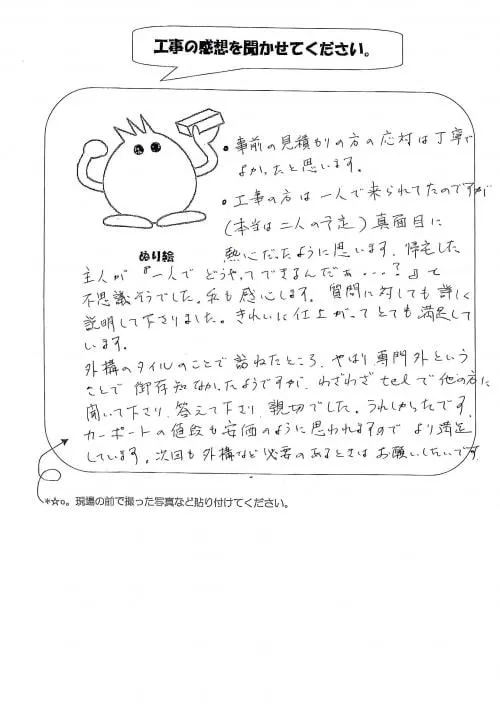 工事の感想を聞かせてください。
・事前の見積かりの方の応対は丁寧で
よかったと思います。
・工事の方は一人で来られてたのですが
(本当は二人の予定)真面目に
熱心だったように思います。帰宅した
ぬり絵
主人が『一人でどうやってできるんだぁ…?』と
不思議そうでした。私も感心します。質問に対しても詳しく
説明して下さりました。きれいに仕上がってとても満足して
います。
外構のタイルのことで訪ねたところ、やはり専門外という
ことで御存知なかったようですが、わざわざtelで他の方に
聞いて下さり、答えて下さり、親切でした。うれしかったです。
カーポートの値段も安価のように思われますので より満足
しています。次回も外構など必要のあるときはお願いしたいです。
*☆○。現場の前で撮った写真など貼り付けてください。